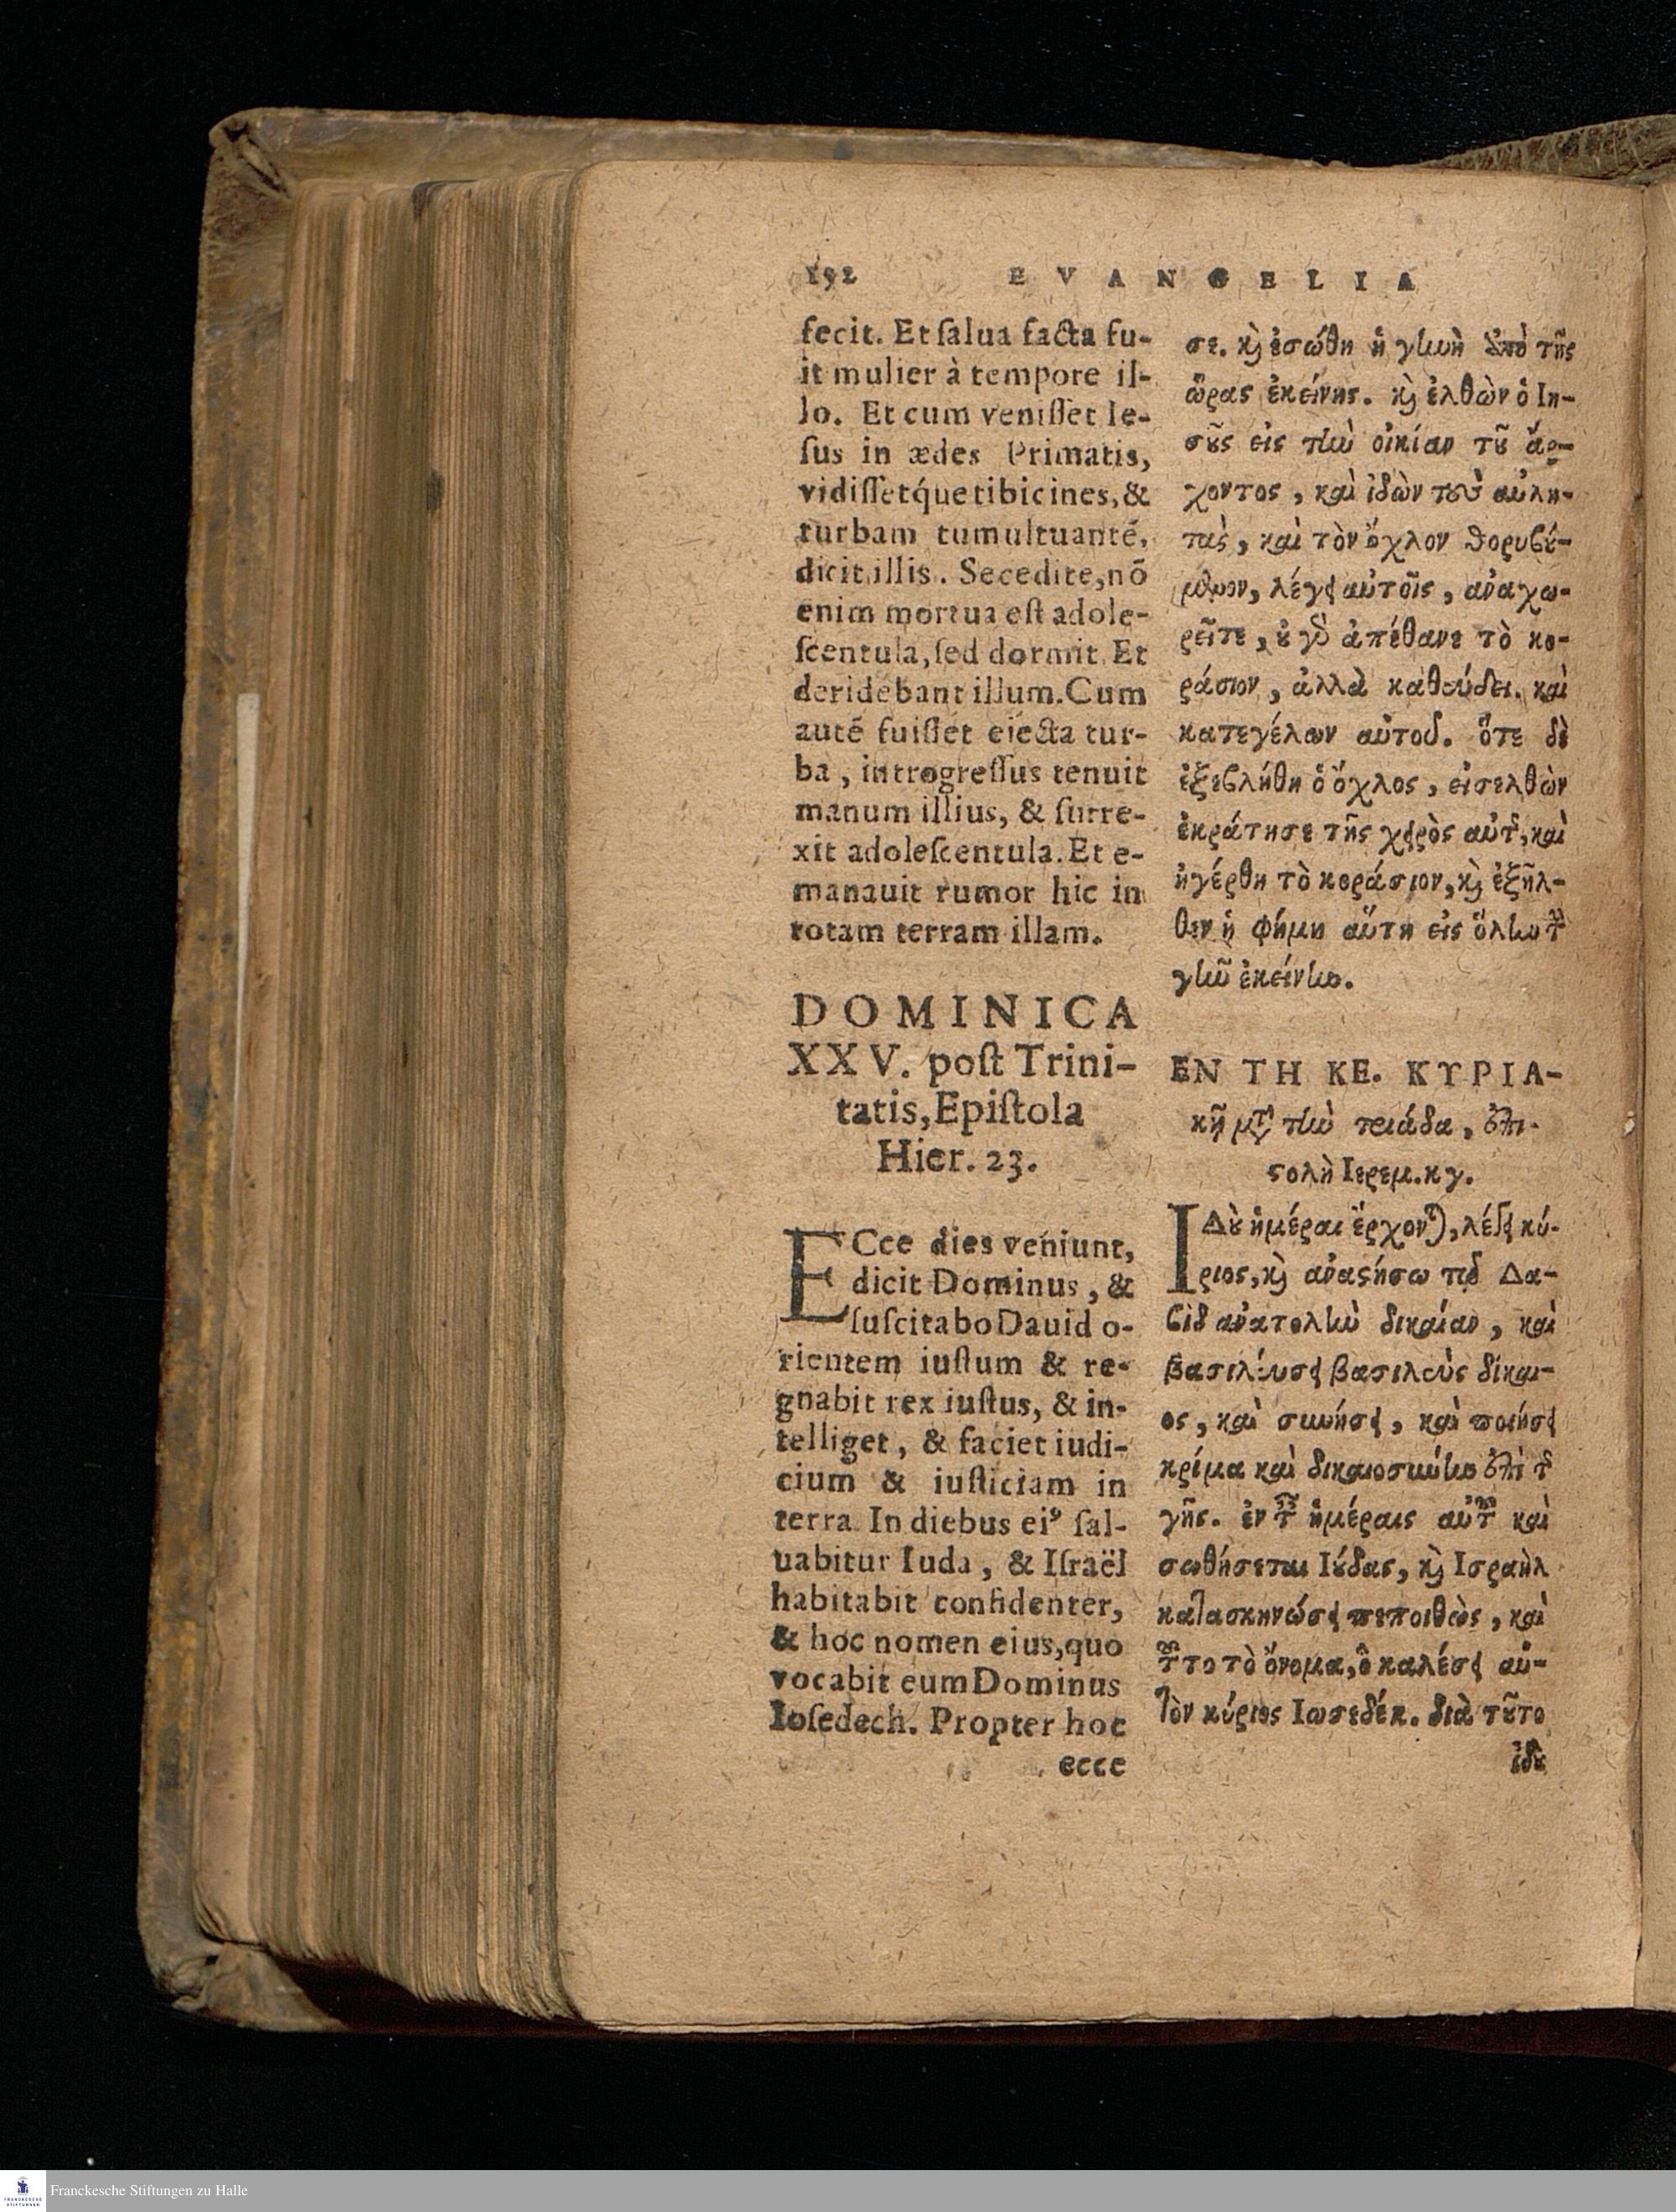 192 EVANGELIA
fecit. Et ſalua facta fu-
it mulier à tempore il-
lo. Et cum veniſſet Ie-
ſus in ædes Primatis,
vidiſſetq́ue tibicines, &
turbam tumultuanté,
dicit illis. Secedite, nō
enim mortua eſt adole-
ſcentula, ſed dormit. Et
deridebant illum. Cum
auté fuiſſet eiecta tur-
ba, introgreſſus tenuit
manum illius, & ſurre-
xit adoleſcentula. Et e-
manauit rumor hic in
totam terram illam.
DOMINICA
XXV. poſt Trini-
tatis, Epiſtola
Hier. 23.
ECce dies veniunt,
dicit Dominus, &
ſuſcitabo Dauid o-
rientem iuſtum & re-
gnabit rex iuſtus, & in-
telliget, & faciet iudi-
cium & iuſticiam in
terra. In diebus eiꝰ ſal-
uabitur Iuda, & Iſraël
habitabit confidenter,
& hoc nomen eius, quo
vocabit eum Dominus
Ioſedech. Propter hoc
ecce
σε. ϗ̀ ἐσώθη ἡ γυνὴ ἀπὸ τῆς
ὥρας ἐκείνης. ϗ̀ ἐλθὼν ὁ Ιη-
σȣ͂ς εἰς τὴν οἰκίαν τȣ͂ ἄρ-
χοντος, καὶ ἰδὼν τοὺς αὐλη-
τὰς, καὶ τὸν ὄχλον θορυβȣ́-
μενον, λέγει αὐτοῖς, ἀναχω-
ρεῖτε, ȣ̓ γὰρ ἀπέθανε τὸ κο-
ράσιον, ἀλλὰ καθεύδει. καὶ
κατεγέλων αὐτοῦ. ὅτε δὲ
ἐξεβλήθη ὁ ὄχλος, εἰσελθὼν
ἐκράτησε τῆς χειρὸς αὐτῆς, καὶ
ἠγέρθη τὸ κοράσιον, ϗ̀ ἐξῆλ-
θεν ἡ φήμη αὕτη εἰς ὅλην τὴν
γῆν ἐκείνην.
ΕΝ ΤΗ ΚΕ. ΚΥΡΙΑ-
κῇ μετὰ τὴν τριάδα, ἐπι-
ϛολὴ Ιερεμ. κγ.
ΙΔȣ̀ ἡμέραι ἔρχονται, λέγει κύ-
ριος, ϗ̀ ἀναϛήσω τῷ Δα-
βὶδ ἀνατολὴν δικαίαν, καὶ
βασιλεύσει βασιλεὺς δίκαι-
ος, καὶ συνήσει, καὶ ποιήσει
κρίμα καὶ δικαιοσύνην ἐπὶ τῆς
γῆς. ἐν ταῖς ἡμέραις αὐτοῦ καὶ
σωθήσεται Ιȣ́δας, ϗ̀ Ισραὴλ
κατασκηνώσει πεποιθὼς, καὶ
τοῦτο τὸ ὄνομα, ὃ καλέσει αὐ-
τὸν κύριος Ιωσεδέκ. διὰ τȣ͂το
ἰδȣ̀
Franckesche Stiftungen zu Halle